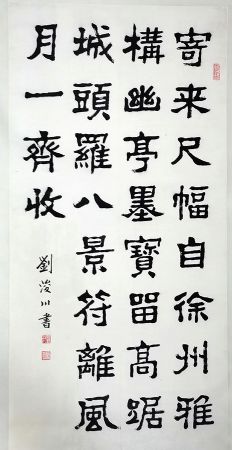 寄来尺幅自徐州雅
構幽亭墨寶留高踞
城頭羅八景符離風
月一齊收
劉浚川書